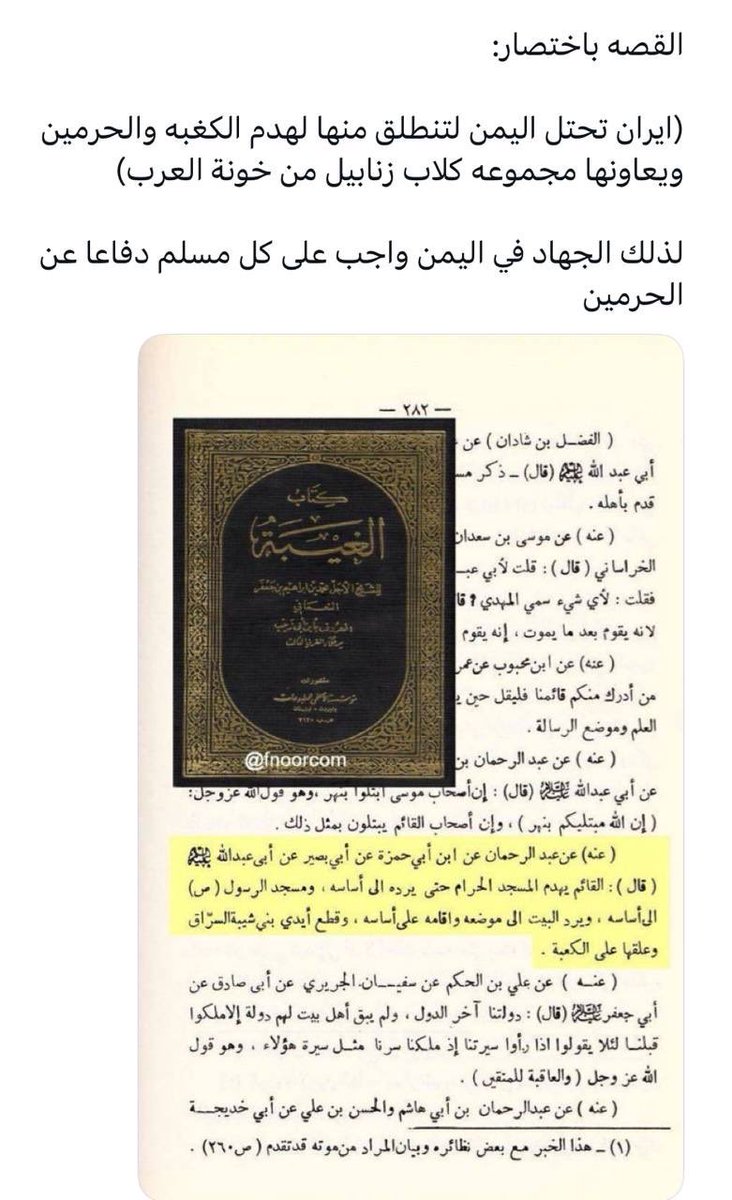 القصه باختصار:
(ايران تحتل اليمن لتنطلق منها لهدم الكغبه والحرمين
ويعاونها مجموعه كلاب زنابيل من خونة العرب)
لذلك الجهاد في اليمن واجب على كل مسلم دفاعا عن
الحرمين
— ٢٨٢ —
( الفضل بن شاذان ) عن
أبي عبد الله (قال) ـ ذكر
قدم بأهله .
( عنه ) عن موسى بن سعدان
الخراساني ( قال ) : قلت لأبي
فقلت : لأي شيء سمي المهدي ؟
لانه يقوم بعد ما يموت ، إنه يقوم
( عنه ) عن ابن محبوب عن
من أدرك منكم قائمنا فليقل حين
العلم وموضع الرسالة .
( عنه ) عن عبد الرحمان بن
كتاب
الغيبة
@fnoorcom
عن أبي عبدالله (قال) : إن أصحاب موسى ابتلوا بنهر ، وهو قول الله عزوجل:
( إن الله مبتليكم بنهر ) ، وإن أصحاب القائم يبتلون بمثل ذلك .
( عنه) عن عبد الرحمان عن ابن أبي حمزة عن أبي بصير عن أبي عبدالله
( قال ) : القائم يهدم المسجد الحرام حتى يرده الى أساسه ، ومسجد الرسول ( ص)
الى أساسه ، ويرد البيت الى موضعه واقامه على أساسه ، وقطع أيدي بني شيبة السرّاق
وعلقها على الكعبة .
( عنه ) عن علي بن الحكم عن سفيان الجريري عن أبي صادق عن
أبي جعفر (قال) : دولتنا آخر الدول ، ولم يبق أهل بيت لهم دولة إلا ملكوا
قبلنا لئلا يقولوا اذا رأوا سيرتنا إذ ملكنا سرنا مثل سيرة هؤلاء ، وهو قول
الله عز وجل ( والعاقبة للمتقين ) .
( عنه ) عن عبدالرحمان بن أبي هاشم والحسن بن علي عن أبي خديجة
(١) ـ هذا الخبر مع بعض نظائره وبيان المراد من موته قد تقدم ( ص٢٦٠) .